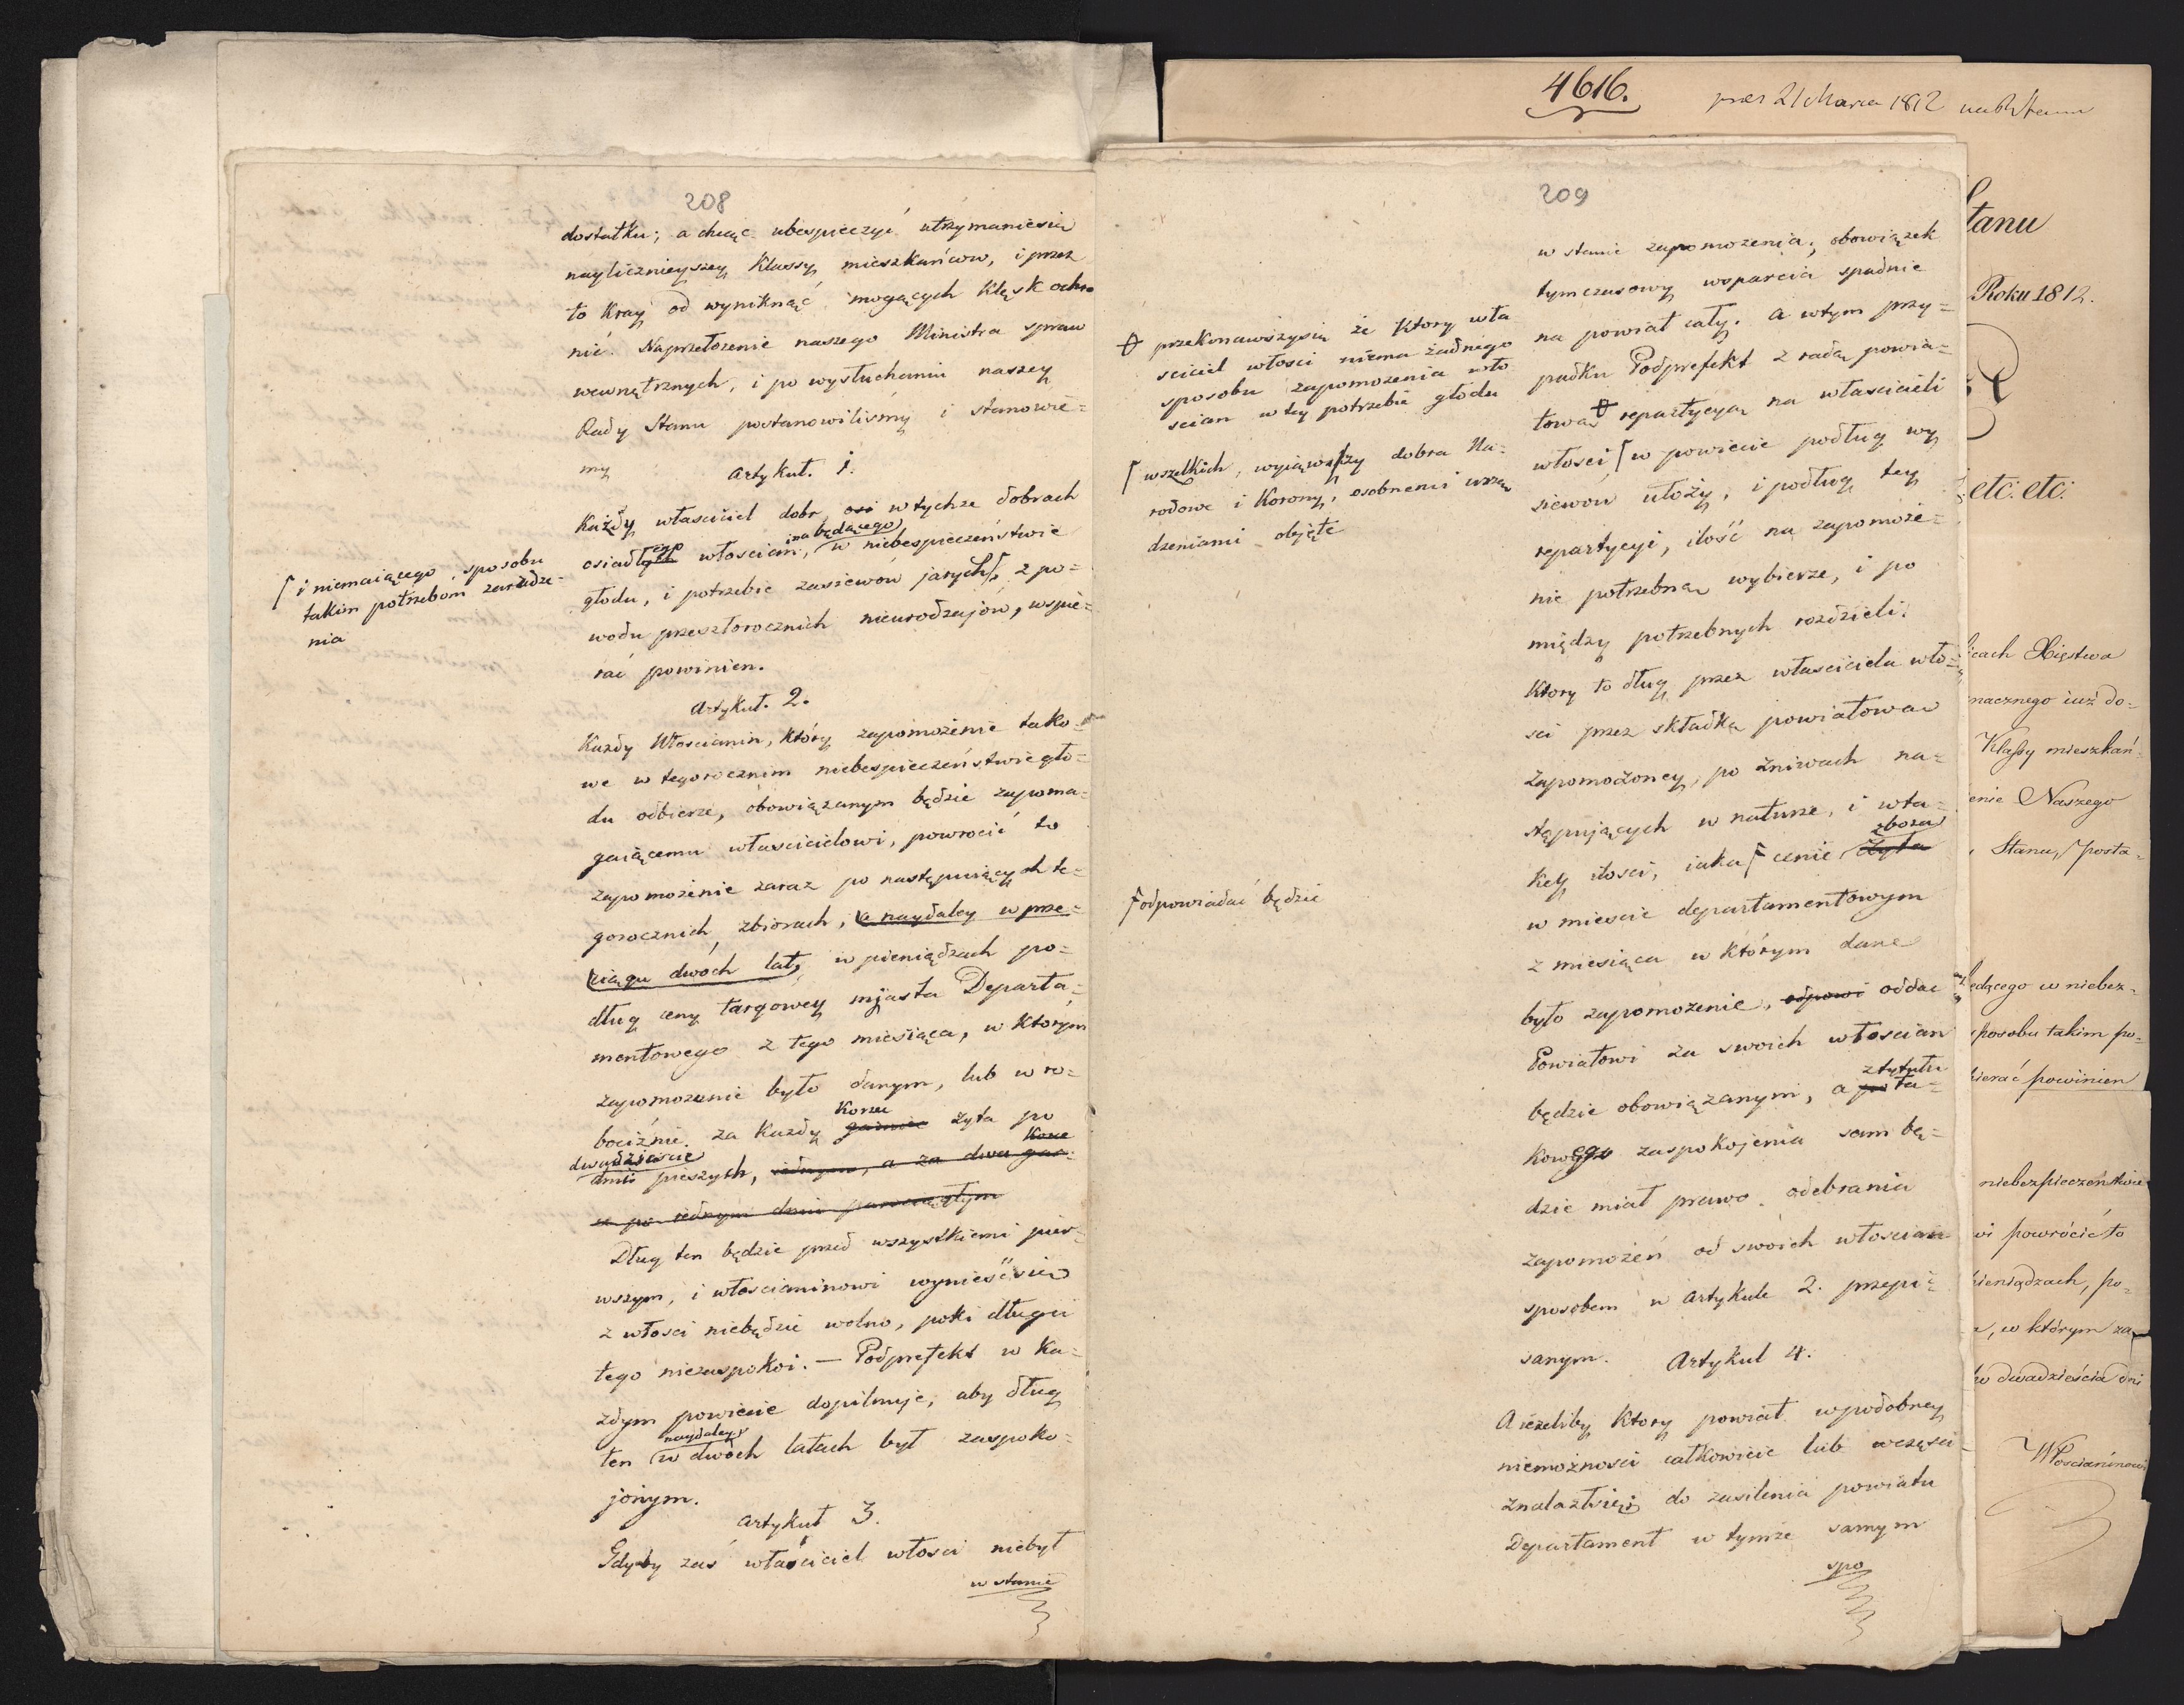 208
dostatku; a chcąc ubespieczyć utrzymaniesię
nayliczniejszey Klassy mieszkańcow, i przez
to Kray od wyniknąć mogących Klęsk ochro
nić. Naprzełożenie naszego Ministra spraw
wewnętrznych, i po wysłuchaniu naszey
Rady Stanu postanowiliśmy i stanowie-
my
Artykuł. 1.
Każdy właściciel dobr, osi w tychże dobrach
ego na będącego
osiadłych włościan, w niebespieczeństwie
głodu, i potrzebie zasiewów jarych⌈, z po-
wodu przeszłorocznich nieurodzajów, wspie-
rać powinien.
⌈ i niemaiącego, sposobu
takim potrzebom zaradze-
nia
Artykuł. 2.
Każdy Włościanin, który zapomożenie tako-
we w tegorocznim niebespieczeństwie gło-
du odbierze, obowiązanym będzie zapoma-
gaiącemu właścicielowi, powrocić to
zapomożenie zaraz po następuiących te-
gorocznich zbiorach, a naydaley w prze-
ciągu dwóch lat, w pieniądzach po-
dług ceny targowey miasta Departa-
mentowego z tego miesiąca, w ktorym
zapomożenie było danym, lub w ro-
Korzec
bociźnie. za Każdy garniec żyta po
dwadzieścia Korce
dnió pieszych, iednym, a za dwa gar-
ce po iednym dniu parociągłym
Dług ten będzie przed wszystkiemi pier-
wszym, i włościaninowi wynieśćsię
z włości niebędzie wolno, poki długu
tego niezaspokoi. — Podprefekt w Ka-
żdym powiecie dopilnuje, aby dług
naydaley
ten w dwóch latach był zaspoko-
jonym.
Artykuł 3.
Gdyby zaś właściciel włości niebył
w stanie
209
w stanie zapomożenia, obowiązek
tymczasowy wsparcia spadnie
na powiat cały. a wtym przy-
padku Podprefekt z radą powia-
tową repartycyą na właścicieli
włości ⌈ w powiecie podług wy
siewow ułoży, i podług tey
repartycyi, ilość na zapomoże-
nie potrzebną wybierze, i po
między potrzebnych rozdzieli.
Ktory to dług przez właściciela wło-
sci przez składkę powiatową
zapomożoney, po żniwach na-
stępujących w naturze, i w ta-
zboża
Kiey ilości, iaka ⌈ cenie żyta
w mieście departamentowym
z miesiąca w którym dane
było zapomożenie, odpowi oddać
Powiatowi za swoich włościan
z tytułu
będzie obowiązanym, a po ta-
Kowego zaspokojenia sam bę-
dzie miał prawo odebrania
zapomożeń od swoich włościan
sposobem w Artykule 2. przepi-
sanym.
przekonawszysię że Ktory wła
sciciel włości niema żadnego
sposobu zapomożenia wło
scian w tey potrzebie głodu
⌈ wszelkich, wyiąwszy dobra Na-
rodowe i Korony, osobnemi urzą
dzeniami objęte
⌈ odpowiadać będzie
Artykuł 4.
A ieżeliby Ktory powiat wpodobney
niemożności całkowicie lub wczęści
znalazłsię, do zasilenia powiatu
Departament w tymże samym
spo
4616.
21 Marca 1812
Stanu
Roku 1812.
etc. etc.
icach Xięstwa
nacznego iuż do-
Klassy mieszkań
enie Naszego
Stanu, posta-
będącego w niebez-
sposobu takim po-
ierać powinien
niebezpieczeństwie
wi powrócić to
pieniądzach, po-
w którym za
dwadzieścia dni
Włościaninowi